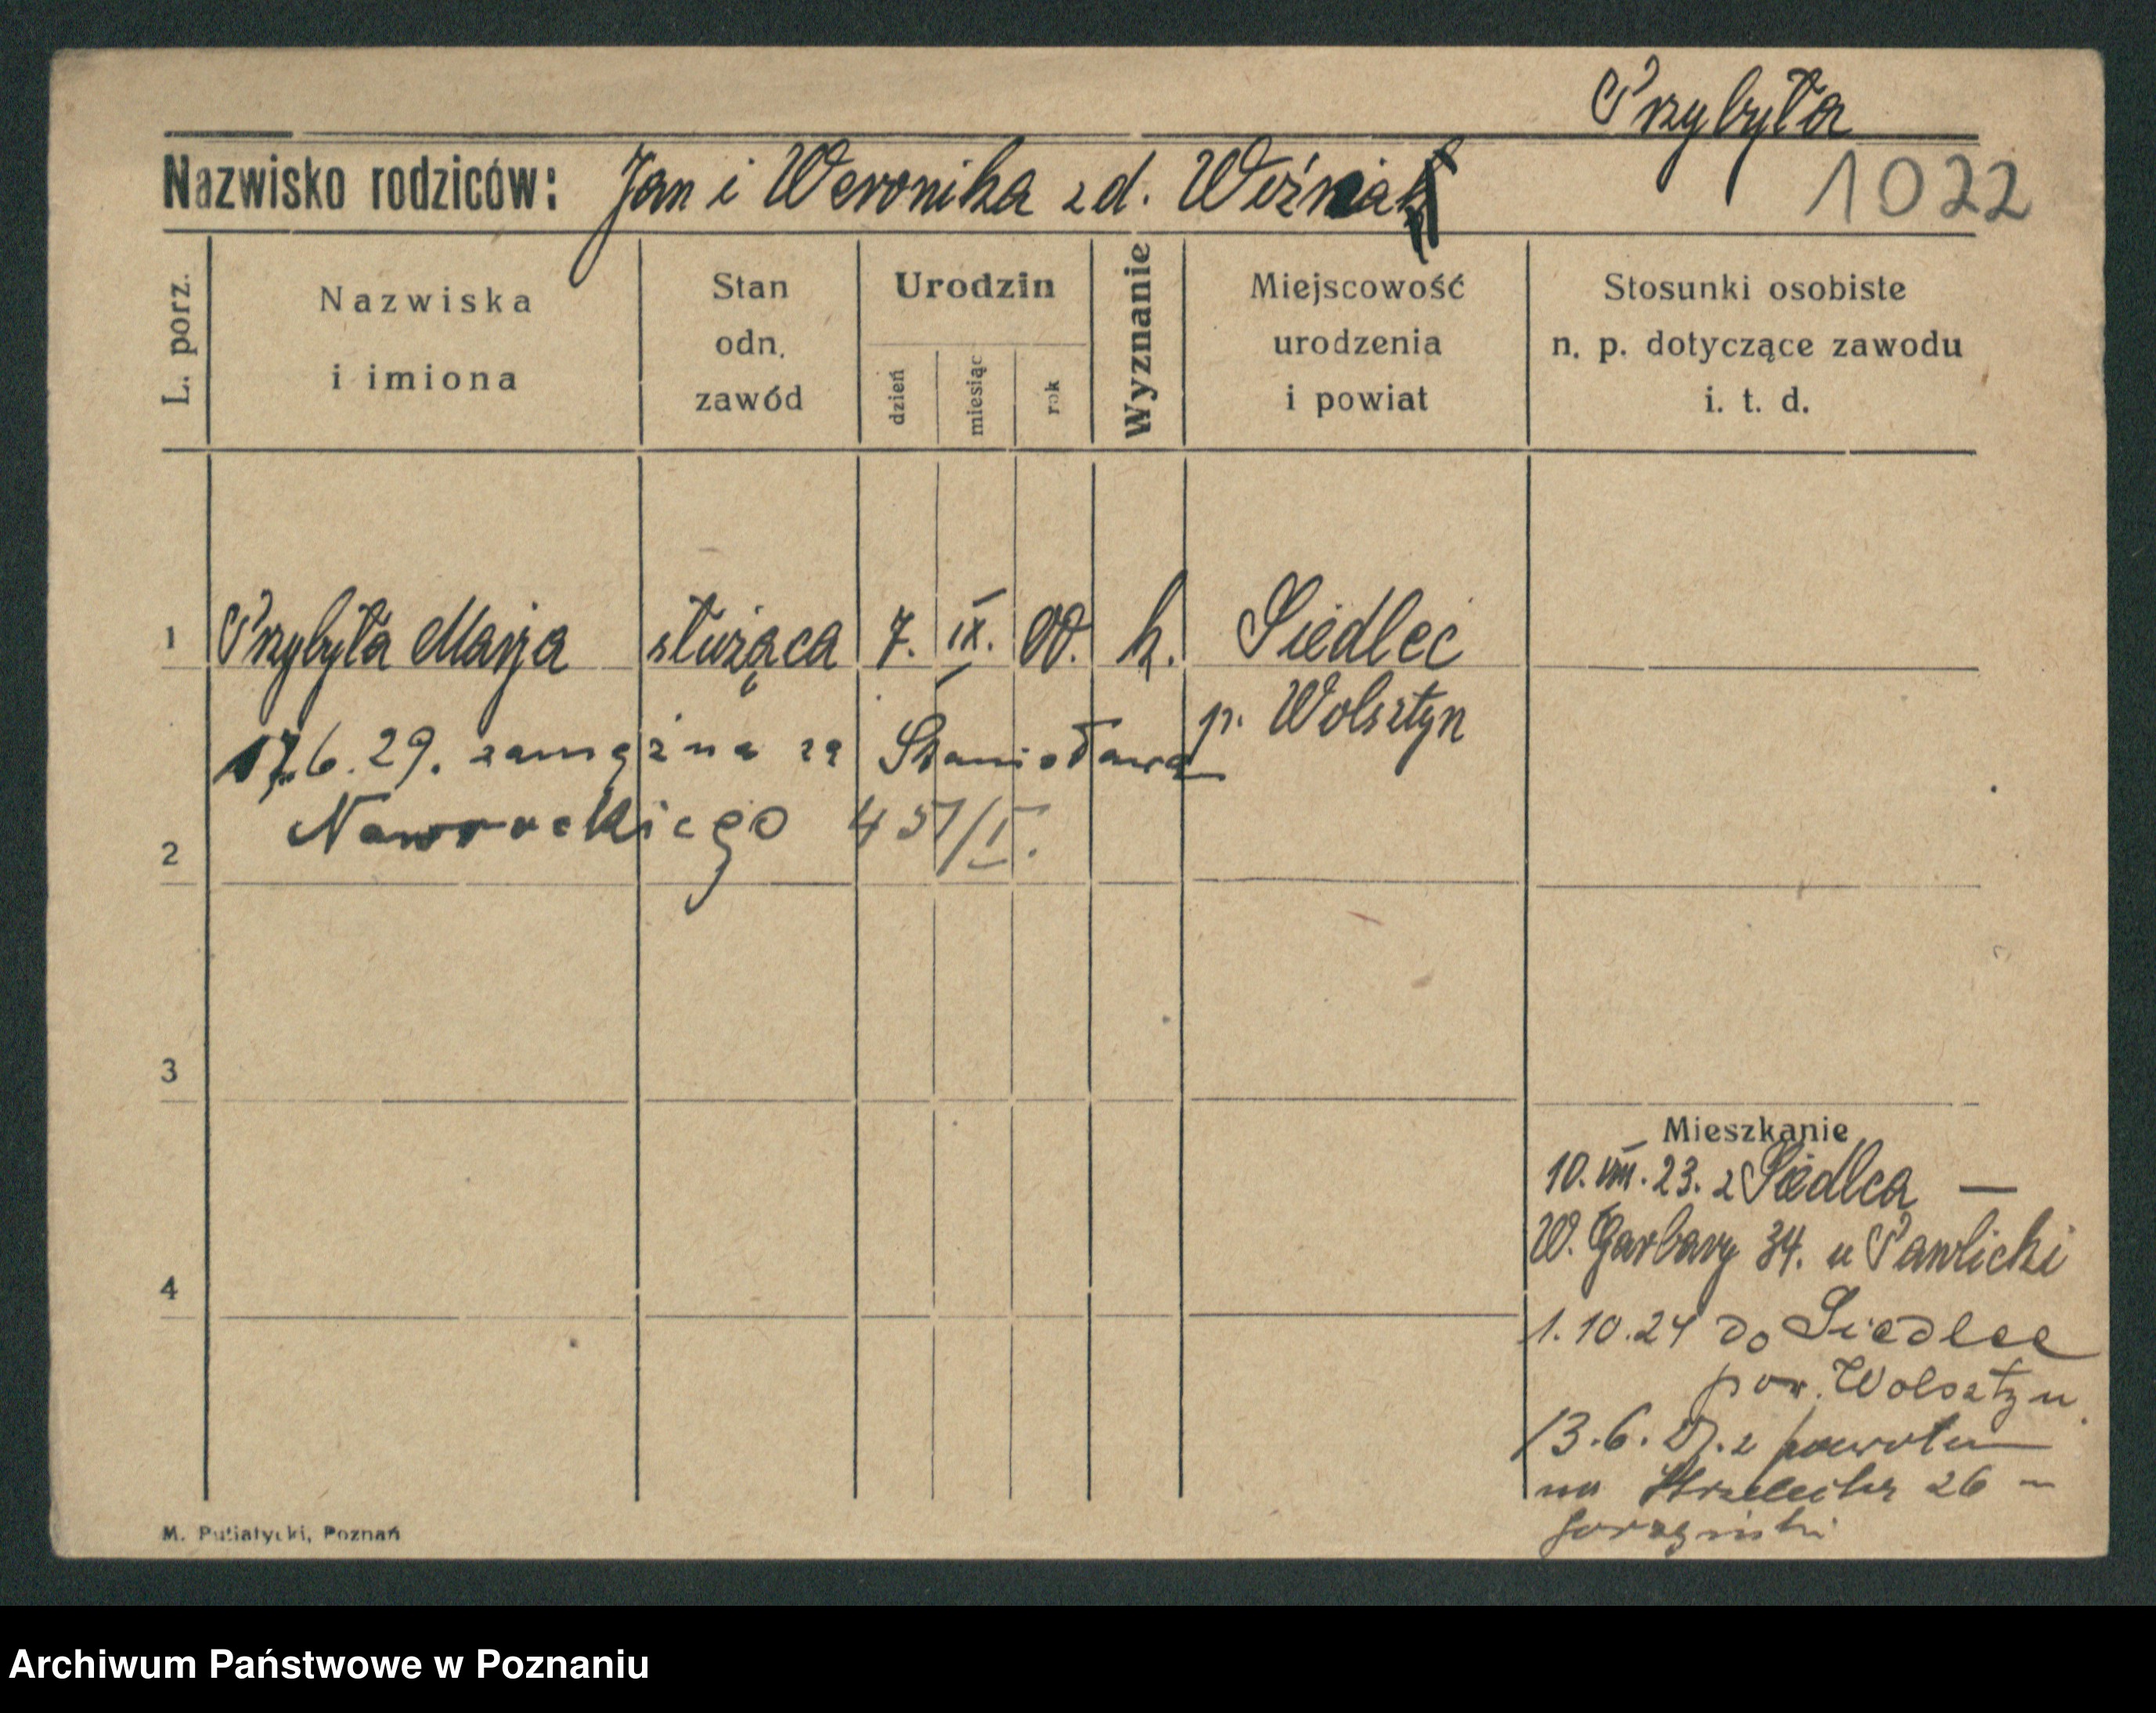 Przybyła
Nazwisko rodziców: Jan i Weronika zd. Woźniak
1022
L. porz.
Nazwiska
i imiona
Stan
odn.
zawód
Urodzin
dzień
miesiąc
rok
Wyznanie
Miejscowość
urodzenia
i powiat
Stosunki osobiste
n. p. dotyczące zawodu
i. t. d.
1 Przybyła Marja służąca 7. IX. 00. k. Siedlec
p. Wolsztyn
17.6.29. zamężna za Stanisława
Nawrockiego
2
3
4
Mieszkanie
10. VIII. 23. z Siedlca —
W. Garbary 34. u Pawlicki
1.10.24 do Siedlec
pow. Wolsztyn.
13.6. z powrotem
na 26 –
M. Putiatycki, Poznań
Archiwum Państwowe w Poznaniu